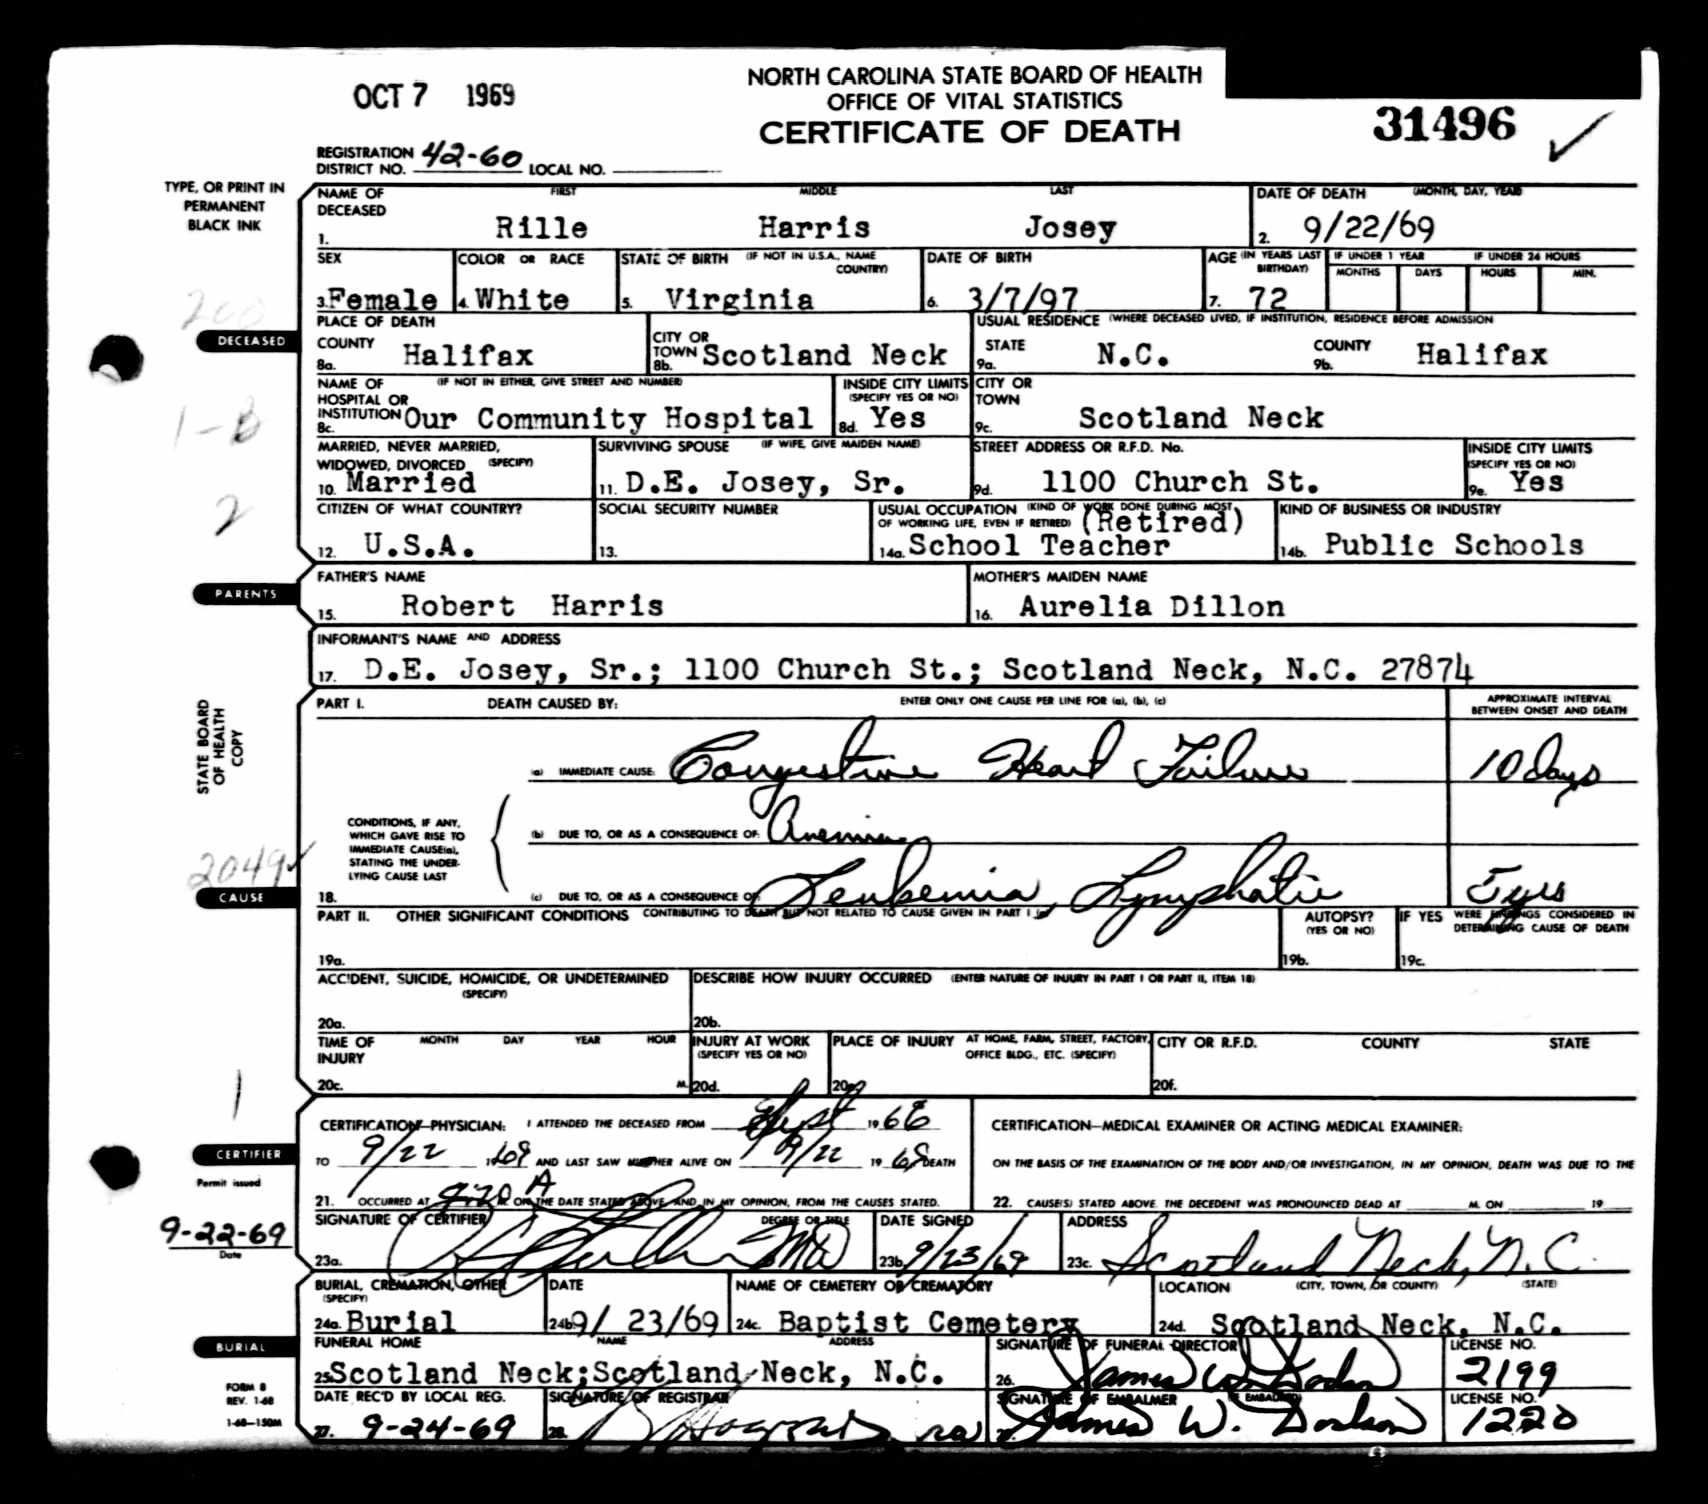 OCT 7 1969
NORTH CAROLINA STATE BOARD OF HEALTH
OFFICE OF VITAL STATISTICS
CERTIFICATE OF DEATH
31496
REGISTRATION DISTRICT NO. 42-60 LOCAL NO.
TYPE, OR PRINT IN
PERMANENT
BLACK INK
NAME OF DECEASED FIRST MIDDLE LAST
1. Rille Harris Josey
DATE OF DEATH (MONTH, DAY, YEAR)
2. 9/22/69
SEX
3. Female
COLOR OR RACE
4. White
STATE OF BIRTH (IF NOT IN U.S.A., NAME COUNTRY)
5. Virginia
DATE OF BIRTH
6. 3/7/97
AGE (IN YEARS LAST BIRTHDAY)
7. 72
IF UNDER 1 YEAR
MONTHS DAYS
IF UNDER 24 HOURS
HOURS MIN.
200
DECEASED
PLACE OF DEATH
COUNTY
8a. Halifax
CITY OR TOWN
8b. Scotland Neck
USUAL RESIDENCE (WHERE DECEASED LIVED, IF INSTITUTION, RESIDENCE BEFORE ADMISSION
STATE
9a. N.C.
COUNTY
9b. Halifax
NAME OF HOSPITAL OR INSTITUTION (IF NOT IN EITHER, GIVE STREET AND NUMBER)
8c. Our Community Hospital
INSIDE CITY LIMITS (SPECIFY YES OR NO)
8d. Yes
CITY OR TOWN
9c. Scotland Neck
MARRIED, NEVER MARRIED, WIDOWED, DIVORCED (SPECIFY)
10. Married
SURVIVING SPOUSE (IF WIFE, GIVE MAIDEN NAME)
11. D.E. Josey, Sr.
STREET ADDRESS OR R.F.D. No.
9d. 1100 Church St.
INSIDE CITY LIMITS (SPECIFY YES OR NO)
9e. Yes
2
CITIZEN OF WHAT COUNTRY?
12. U.S.A.
SOCIAL SECURITY NUMBER
13.
USUAL OCCUPATION (KIND OF WORK DONE DURING MOST OF WORKING LIFE, EVEN IF RETIRED) (Retired)
14a. School Teacher
KIND OF BUSINESS OR INDUSTRY
14b. Public Schools
PARENTS
FATHER'S NAME
15. Robert Harris
MOTHER'S MAIDEN NAME
16. Aurelia Dillon
INFORMANT'S NAME AND ADDRESS
17. D.E. Josey, Sr.; 1100 Church St.; Scotland Neck, N.C. 27874
STATE BOARD
OF HEALTH
COPY
PART I. DEATH CAUSED BY: ENTER ONLY ONE CAUSE PER LINE FOR (a), (b), (c)
APPROXIMATE INTERVAL BETWEEN ONSET AND DEATH
(a) IMMEDIATE CAUSE: Congestive Heart Failure 10 days
CONDITIONS, IF ANY,
WHICH GAVE RISE TO
IMMEDIATE CAUSE(a),
STATING THE UNDER-
LYING CAUSE LAST
(b) DUE TO, OR AS A CONSEQUENCE OF: Anemia
18. (c) DUE TO, OR AS A CONSEQUENCE OF: Leukemia, Lymphatic 5 yrs
2049
CAUSE
PART II. OTHER SIGNIFICANT CONDITIONS CONTRIBUTING TO DEATH BUT NOT RELATED TO CAUSE GIVEN IN PART I (a)
19a.
AUTOPSY? (YES OR NO)
19b.
IF YES WERE FINDINGS CONSIDERED IN DETERMINING CAUSE OF DEATH
19c.
ACCIDENT, SUICIDE, HOMICIDE, OR UNDETERMINED (SPECIFY)
20a.
DESCRIBE HOW INJURY OCCURRED (ENTER NATURE OF INJURY IN PART I OR PART II, ITEM 18)
20b.
TIME OF INJURY MONTH DAY YEAR HOUR
20c. M.
INJURY AT WORK (SPECIFY YES OR NO)
20d.
PLACE OF INJURY AT HOME, FARM, STREET, FACTORY, OFFICE BLDG., ETC. (SPECIFY)
20e.
CITY OR R.F.D. COUNTY STATE
20f.
1
CERTIFICATION—PHYSICIAN: I ATTENDED THE DECEASED FROM Sept 1968
TO 9/22 1969 AND LAST SAW HIM/HER ALIVE ON 9/22 1969 DEATH
21. OCCURRED AT 9:20 A M. ON THE DATE STATED ABOVE, AND, IN MY OPINION, FROM THE CAUSES STATED.
CERTIFICATION—MEDICAL EXAMINER OR ACTING MEDICAL EXAMINER:
ON THE BASIS OF THE EXAMINATION OF THE BODY AND/OR INVESTIGATION, IN MY OPINION, DEATH WAS DUE TO THE
22. CAUSE(S) STATED ABOVE. THE DECEDENT WAS PRONOUNCED DEAD AT M. ON 19
CERTIFIER
Permit issued
9-22-69
Date
SIGNATURE OF CERTIFIER DEGREE OR TITLE
23a. MD
DATE SIGNED
23b. 9/23/69
ADDRESS
23c. Scotland Neck, N.C.
BURIAL, CREMATION, OTHER (SPECIFY)
24a. Burial
DATE
24b. 9/ 23/69
NAME OF CEMETERY OR CREMATORY
24c. Baptist Cemetery
LOCATION (CITY, TOWN, OR COUNTY) (STATE)
24d. Scotland Neck, N.C.
BURIAL
FUNERAL HOME NAME ADDRESS
25. Scotland Neck; Scotland Neck, N.C.
SIGNATURE OF FUNERAL DIRECTOR
26. James W. Dodson
LICENSE NO.
2199
FORM 8
REV. 1-68
1-68—150M
DATE REC'D BY LOCAL REG.
27. 9-24-69
SIGNATURE OF REGISTRAR
28.
SIGNATURE OF EMBALMER (IF EMBALMED)
James W. Dodson
LICENSE NO.
1220